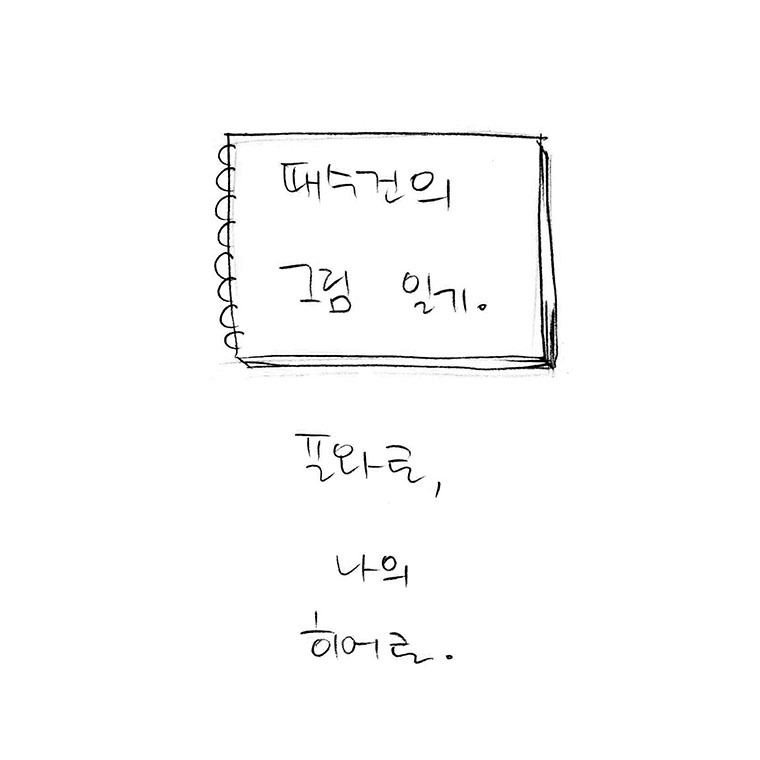 때수건의
그림 일기.
푸와로,
나의
히어로.